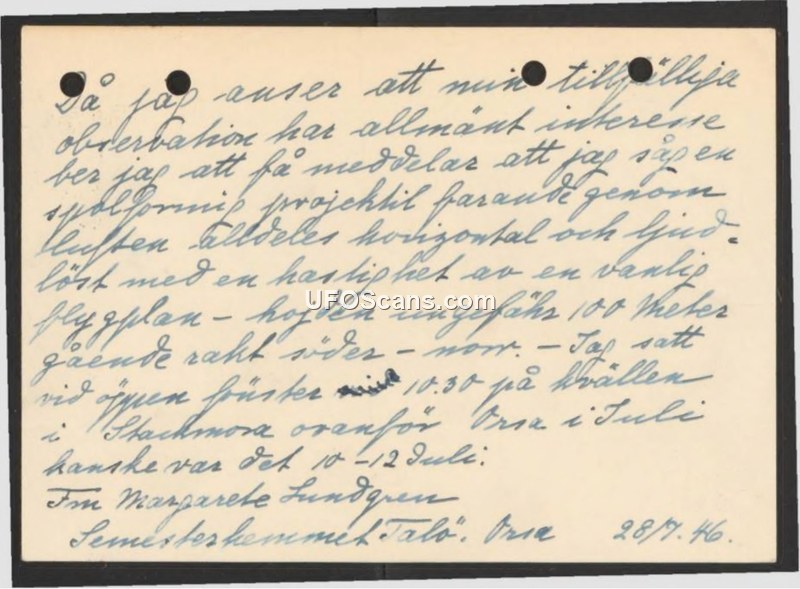 Då jag anser att min tillfälliga
observation har allmänt interesse
ber jag att få meddelar att jag såg en
spolformig projektil farande genom
luften alldeles horizontal och ljud-
löst med en hastighet av en vanlig
flygplan – höjden ungefähr 100 Meter
gående rakt söder – norr. – Jag satt
vid öppen fönster 10.30 på kvällen
i Stackmora ovanför Orsa i Juli
kanske var det 10–12 Juli.
Frn Margarete Lundgren
Semesterhemmet Talö. Orsa 28/7. 46.
UFOScans.com